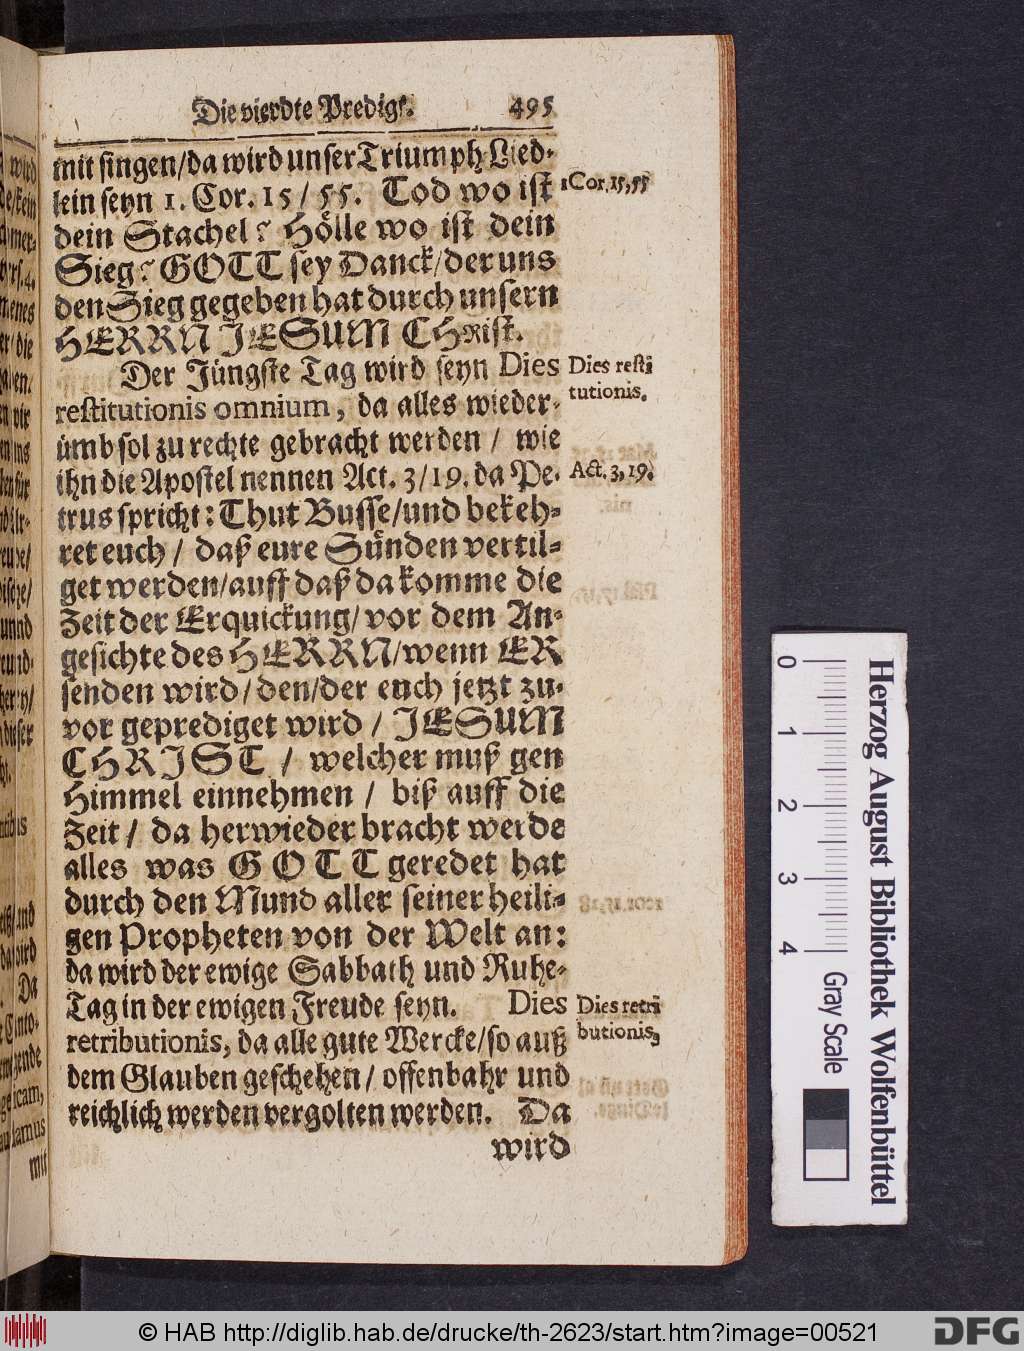 Die vierdte Predigt. 495
mit singen/da wird unser Triumph-Lied-
lein seyn 1. Cor. 15/55. Tod wo ist
1 Cor. 15, 55
dein Stachel? Hölle wo ist dein
Sieg? GOTT sey Danck/der uns
den Sieg gegeben hat durch unsern
HERRN JESUM CHRist.
Der Jüngste Tag wird seyn Dies
Dies resti
restitutionis omnium, da alles wieder-
tutionis.
ümb sol zu rechte gebracht werden / wie
ihn die Apostel nennen Act. 3/19. da Pe-
Act. 3, 19.
trus spricht: Thut Busse/und bekeh-
ret euch / daß eure Sünden vertil-
get werden/auff daß da komme die
Zeit der Erquickung/vor dem An-
gesichte des HERRN/wenn ER
senden wird/den/der euch jetzt zu-
vor geprediget wird / JESUM
CHRIST / welcher muß gen
Himmel einnehmen / biß auff die
Zeit / da herwieder bracht werde
alles was GOTT geredet hat
durch den Mund aller seiner heili-
gen Propheten von der Welt an:
da wird der ewige Sabbath und Ruhe-
Tag in der ewigen Freude seyn. Dies
Dies retri
retributionis, da alle gute Wercke/so auß
butionis,
dem Glauben geschehen / offenbahr und
reichlich werden vergolten werden. Da
wird
Herzog August Bibliothek Wolfenbüttel
0 1 2 3 4 Gray Scale
© HAB http://diglib.hab.de/drucke/th-2623/start.htm?image=00521
DFG